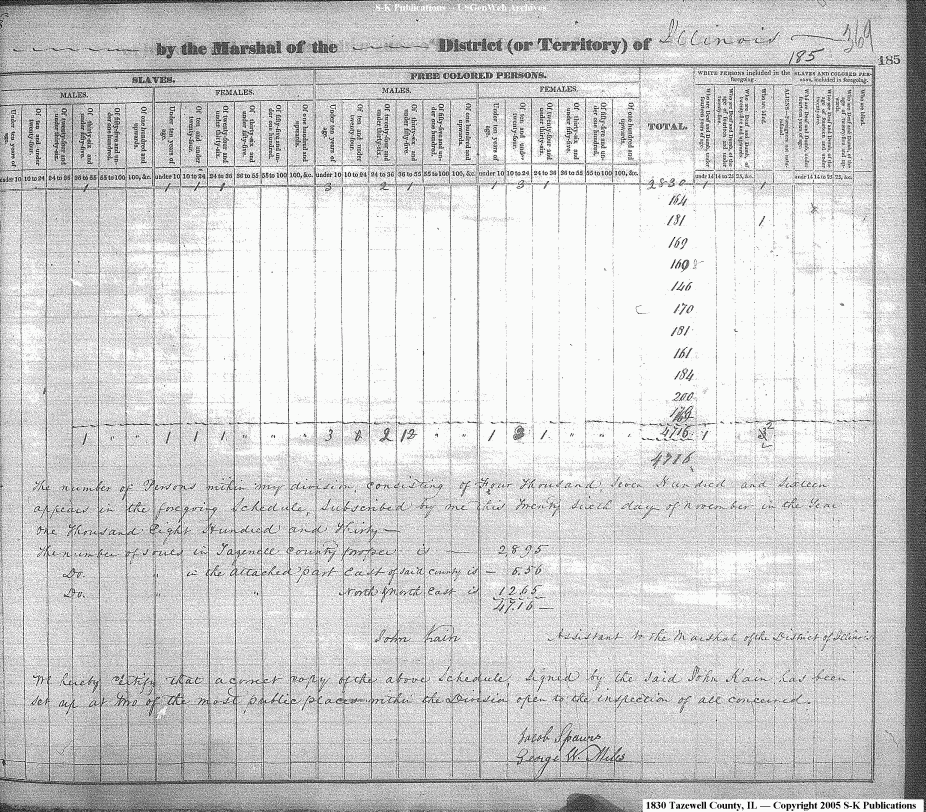 S-K Publications - USGenWeb Archives
by the Marshal of the District (or Territory) of Illinois 369
185 185
SLAVES. FREE COLORED PERSONS. TOTAL. WHITE PERSONS included in the foregoing. SLAVES AND COLORED PERSONS, included in foregoing.
MALES. FEMALES. MALES. FEMALES.
Under ten years of age. Of ten and under twenty-four. Of twenty-four and under thirty-six. Of thirty-six and under fifty-five. Of fifty-five and under one hundred. Of one hundred and upwards. Under ten years of age. Of ten and under twenty-four. Of twenty-four and under thirty-six. Of thirty-six and under fifty-five. Of fifty-five and under one hundred. Of one hundred and upwards. Under ten years of age. Of ten and under twenty-four. Of twenty-four and under thirty-six. Of thirty-six and under fifty-five. Of fifty-five and under one hundred. Of one hundred and upwards. Under ten years of age. Of ten and under twenty-four. Of twenty-four and under thirty-six. Of thirty-six and under fifty-five. Of fifty-five and under one hundred. Of one hundred and upwards.
under 10 10 to 24 24 to 36 36 to 55 55 to 100 100, &c. under 10 10 to 24 24 to 36 36 to 55 55 to 100 100, &c. under 10 10 to 24 24 to 36 36 to 55 55 to 100 100, &c. under 10 10 to 24 24 to 36 36 to 55 55 to 100 100, &c. undr 14 14 to 25 25, &c. undr 14 14 to 25 25, &c.
1 1 1 1 3 2 1 1 3 1 2830 1 1
164
181 1
169
160
146
170
181
161
184
200
1 " " 1 1 1 " " " 3 2 12 " " 1 3 1 " " " 4716 1
4716
The number of Persons within my division, consisting of Four Thousand Seven Hundred and Sixteen
appears in the foregoing Schedule, Subscribed by me this Twenty Sixth day of November in the Year
One Thousand Eight Hundred and Thirty
The number of souls in Tazewell County proper is 2895
Do. " in the attached part East of said County is 556
Do. " " North & North East is 1265
4716
John Kain Assistant to the Marshal of the District of Illinois
We hereby Certify that a correct copy of the above Schedule, Signed by the Said John Kain has been
set up at two of the most public places within the Division open to the inspection of all concerned.
Jacob Spawr
George W. Miles
1830 Tazewell County, IL — Copyright 2005 S-K Publications